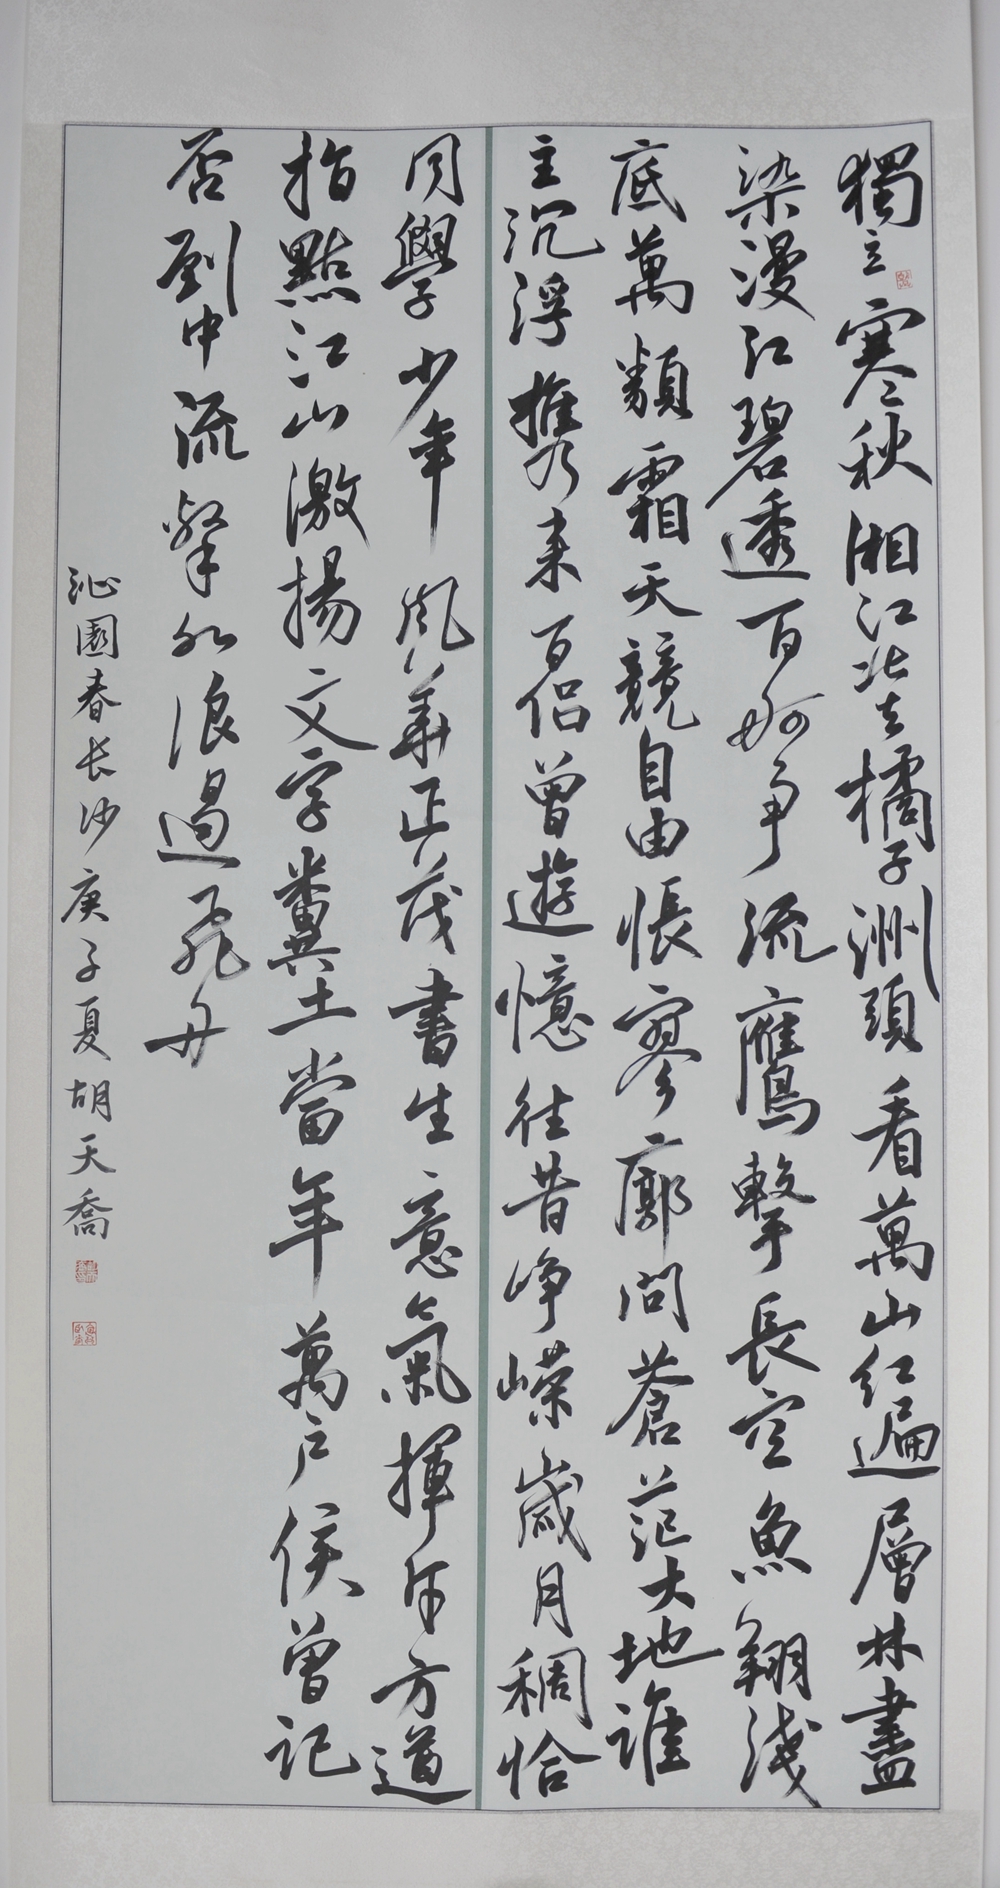 獨立寒秋湘江北去橘子洲頭看萬山红遍層林盡
染漫江碧透百舸争流鷹擊長空魚翔淺
底萬類霜天競自由悵寥廓問蒼茫大地誰
主沉浮携来百侣曾遊憶往昔峥嵘歲月稠恰
同學少年風華正茂書生意氣揮斥方遒
指點江山激揚文字糞土當年萬户侯曾記
否到中流擊水浪遏飛舟
沁園春长沙庚子夏胡天喬